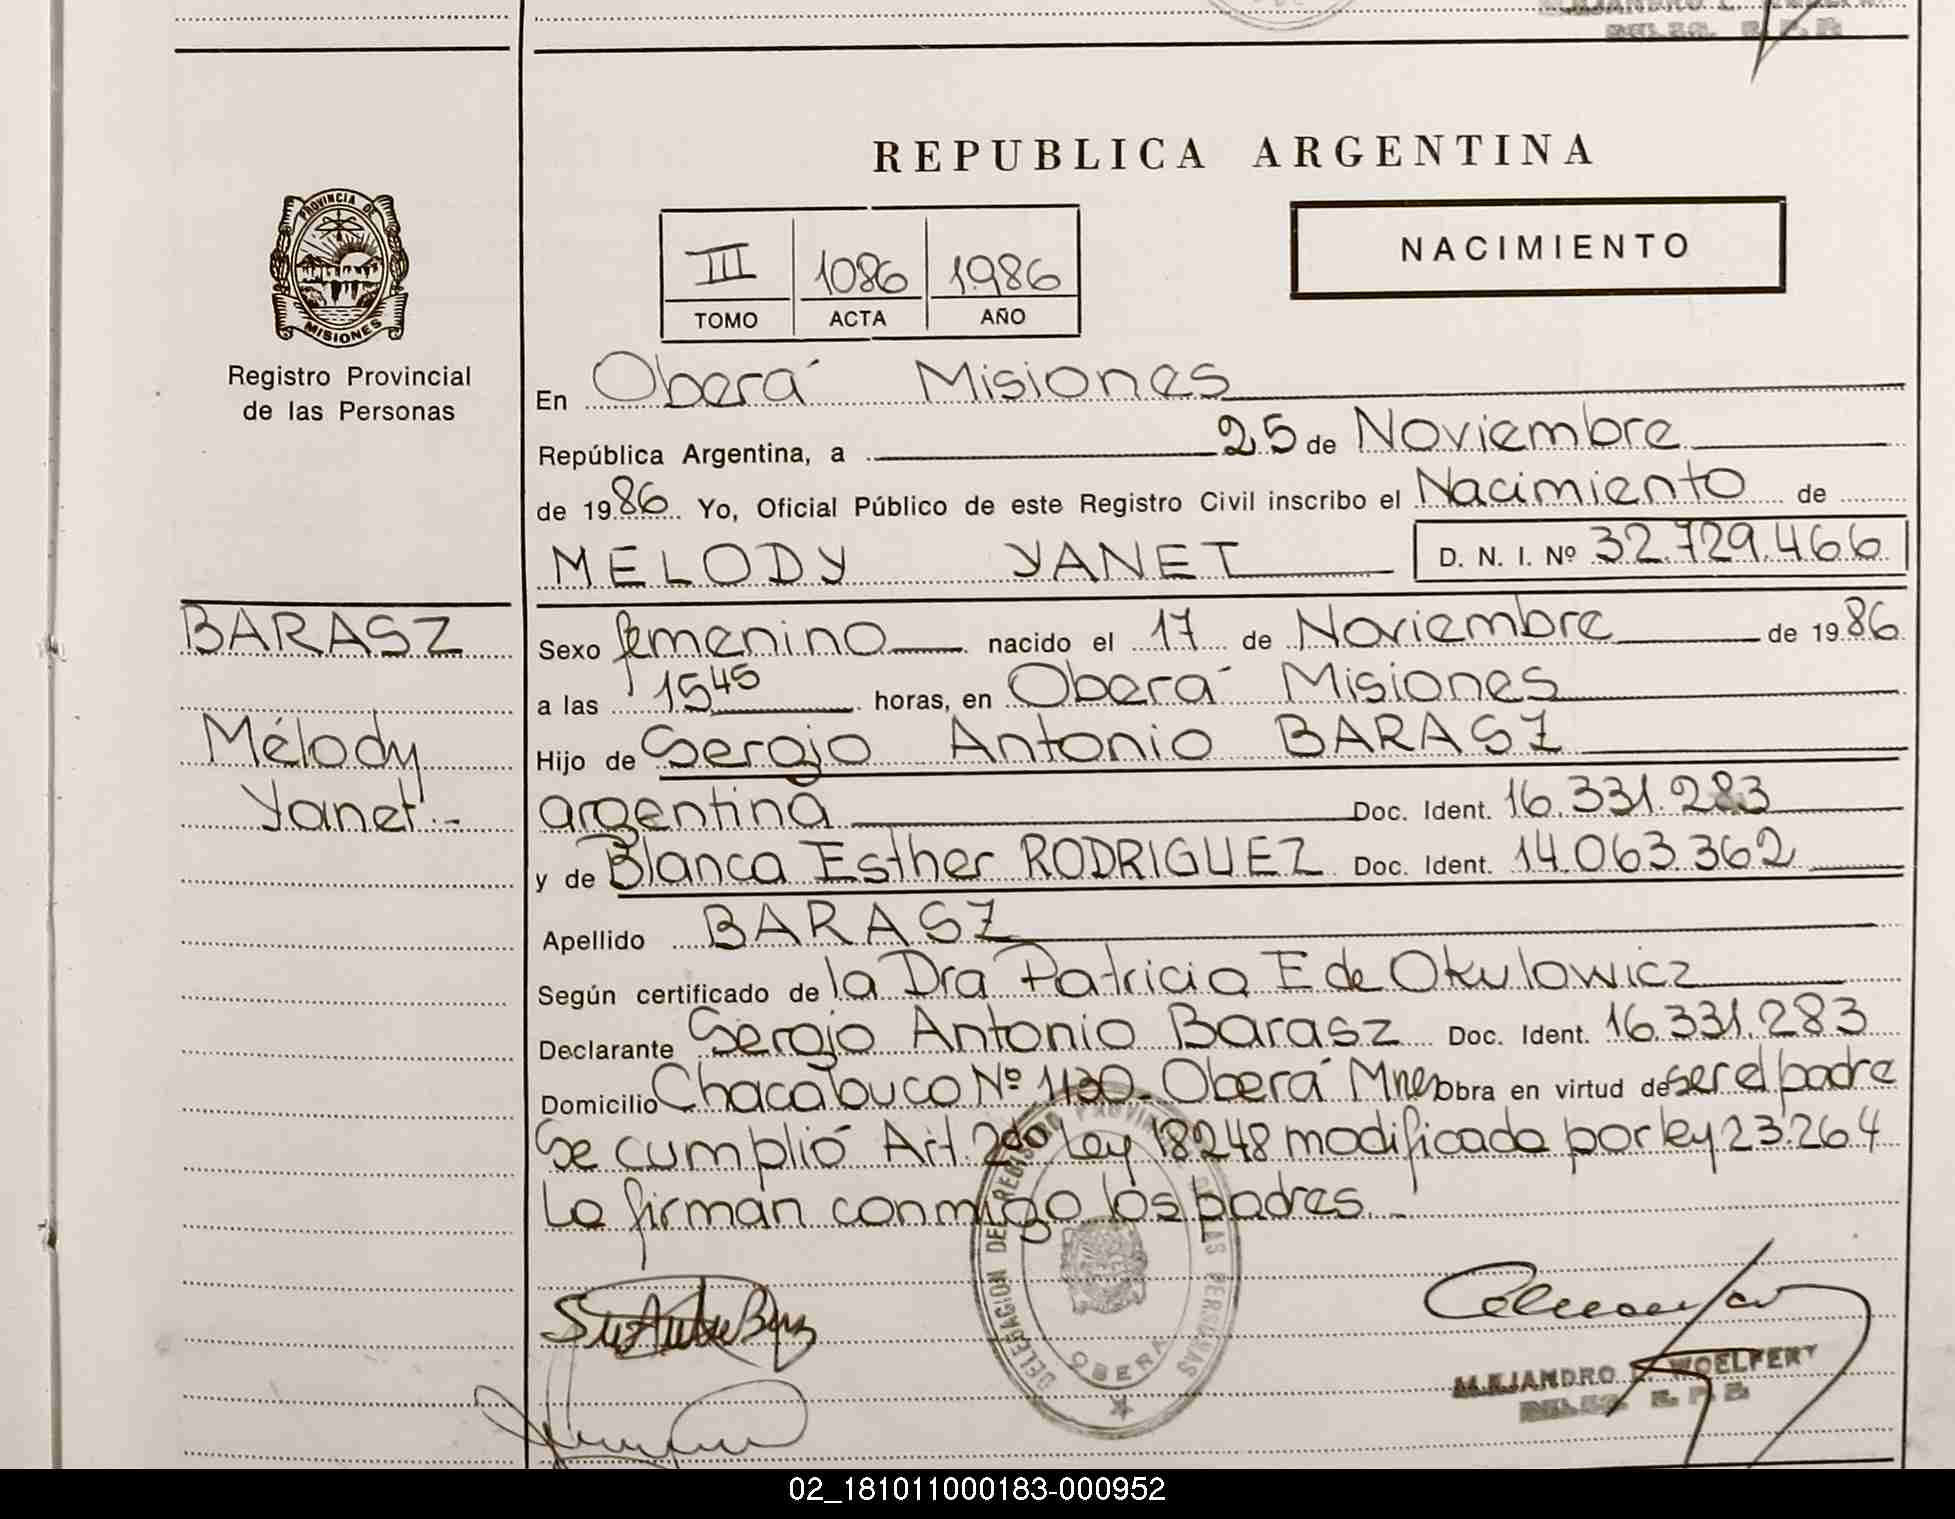 REPUBLICA ARGENTINA
PROVINCIA DE
MISIONES
Registro Provincial
de las Personas
III 1086 1986
TOMO ACTA AÑO
NACIMIENTO
En Oberá Misiones
República Argentina, a 25 de Noviembre
de 1986 Yo, Oficial Público de este Registro Civil inscribo el Nacimiento de
MELODY YANET D. N. I. Nº 32.729.466
BARASZ
Mélody
Yanet.-
Sexo femenino nacido el 17 de Noviembre de 1986
a las 15 45 horas, en Oberá Misiones
Hijo de Sergio Antonio BARASZ
argentina Doc. Ident. 16.331.283
y de Blanca Esther RODRIGUEZ Doc. Ident. 14.063.362
Apellido BARASZ
Según certificado de la Dra Patricia E de Okulowicz
Declarante Sergio Antonio Barasz Doc. Ident. 16.331.283
Domicilio Chacabuco Nº 1130- Oberá Mnes Obra en virtud de ser el padre
Se cumplió Art. 2do Ley 18248 modificada por ley 23.264
La firman conmigo los padres.-
DELEGACION DEL REGISTRO PROVINCIAL DE LAS PERSONAS
OBERA
ALEJANDRO E. WOELFERT
DELEG. R. P. P.
02_181011000183-000952